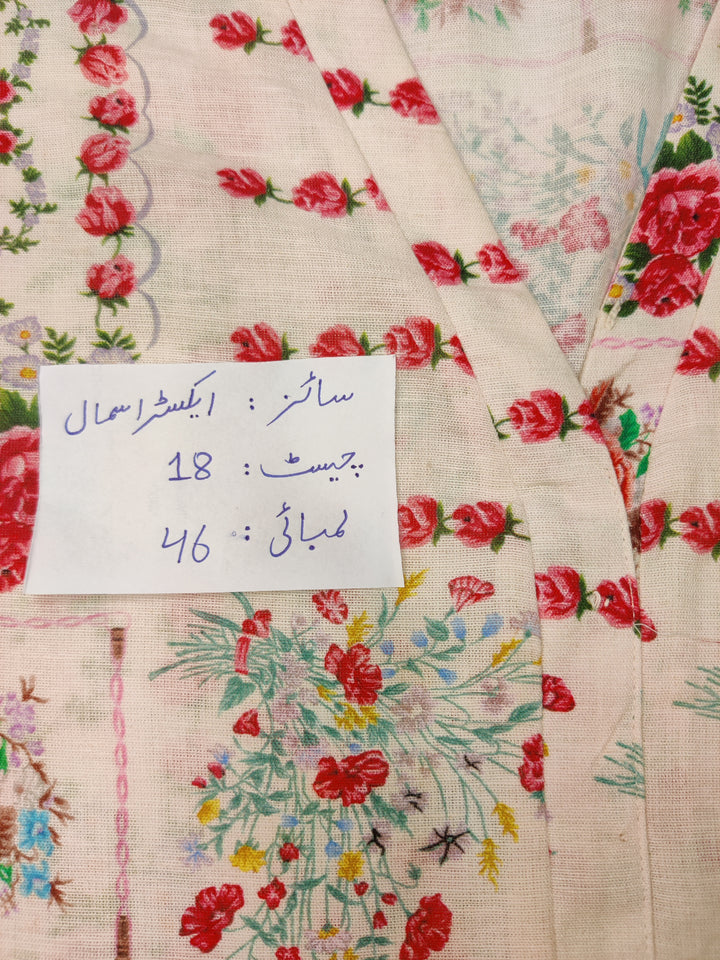 سائز : ایکسٹرا سمال
چیسٹ : 18
لمبائی : 46